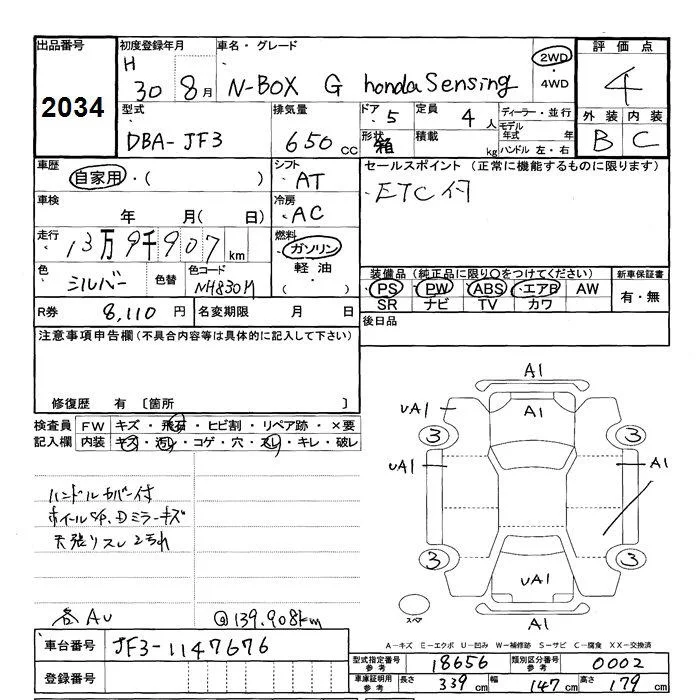 出品番号
2034
初度登録年月
H 30 8月
車名・グレード
N-BOX G hondaSensing
2WD
・
4WD
評価点
4
外装 内装
B C
型式
DBA-JF3
排気量
650cc
ドア 5
形状 箱
定員 4人
積載 kg
ディーラー・並行
モデル年式 年
ハンドル 左・右
車歴
自家用・( )
シフト
AT
セールスポイント (正常に機能するものに限ります)
・ETC付
車検
年 月( 日)
冷房
AC
走行
13万9千907km
燃料
ガソリン
軽油
・( )
色
シルバー
色替
色コード
NH830M
装備品(純正品に限り○をつけてください)
PS・PW・ABS・エアB・AW
SR ナビ TV カワ
新車保証書
有・無
R券 8,110円
名変期限 月 日
後日品
注意事項申告欄(不具合内容等は具体的に記入して下さい)
修復歴 有 〔箇所 〕
検査員記入欄
FW キズ・飛石・ヒビ割・リペア跡・×要
内装 キズ・汚レ・コゲ・穴・スレ・キレ・破レ
ハンドルカバー付
ホイールS/P、Dミラーキズ
天張リスレ2汚れ
各AU
@139.908km
A1
A1
UA1
3
3
UA1
A1
3
3
UA1
A1
スペア
A-キズ E-エクボ U-凹み W-補修跡 S-サビ C-腐食 XX-交換済
車台番号 JF3-1147676
登録番号
型式指定番号 参考 18656
類別区分番号 参考 0002
車庫証明用 参考 長さ 339cm 幅 147cm 高さ 179cm